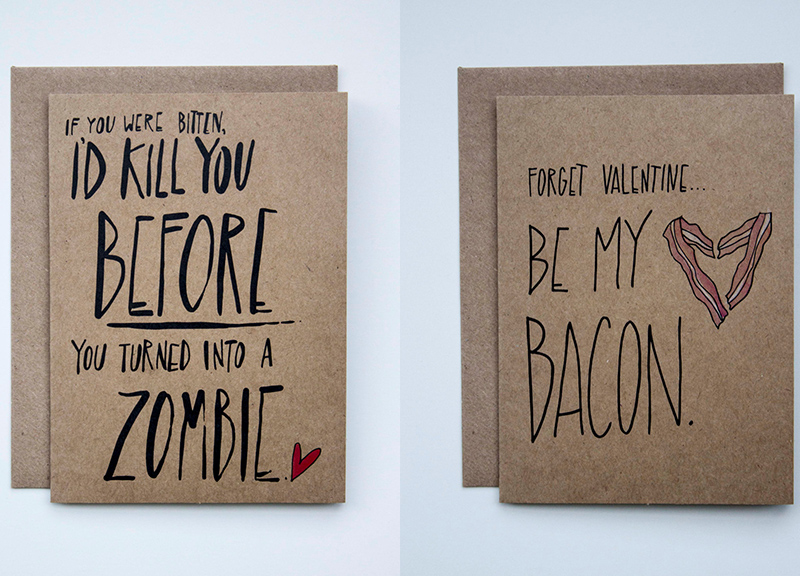 IF YOU WERE BITTEN,
I'D KILL YOU
BEFORE
YOU TURNED INTO A
ZOMBIE.
FORGET VALENTINE....
BE MY
BACON.